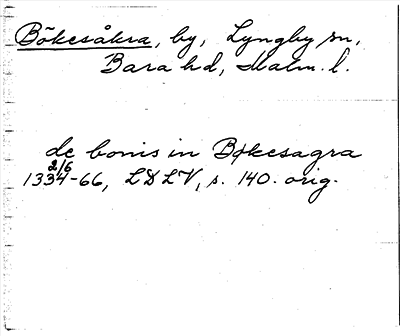 Bökesåkra, by, Lyngby sn,
Bara hd, Malm. l.
de bonis in Bøkesagra
2/6
1334-66, LDLV, s. 140. orig.